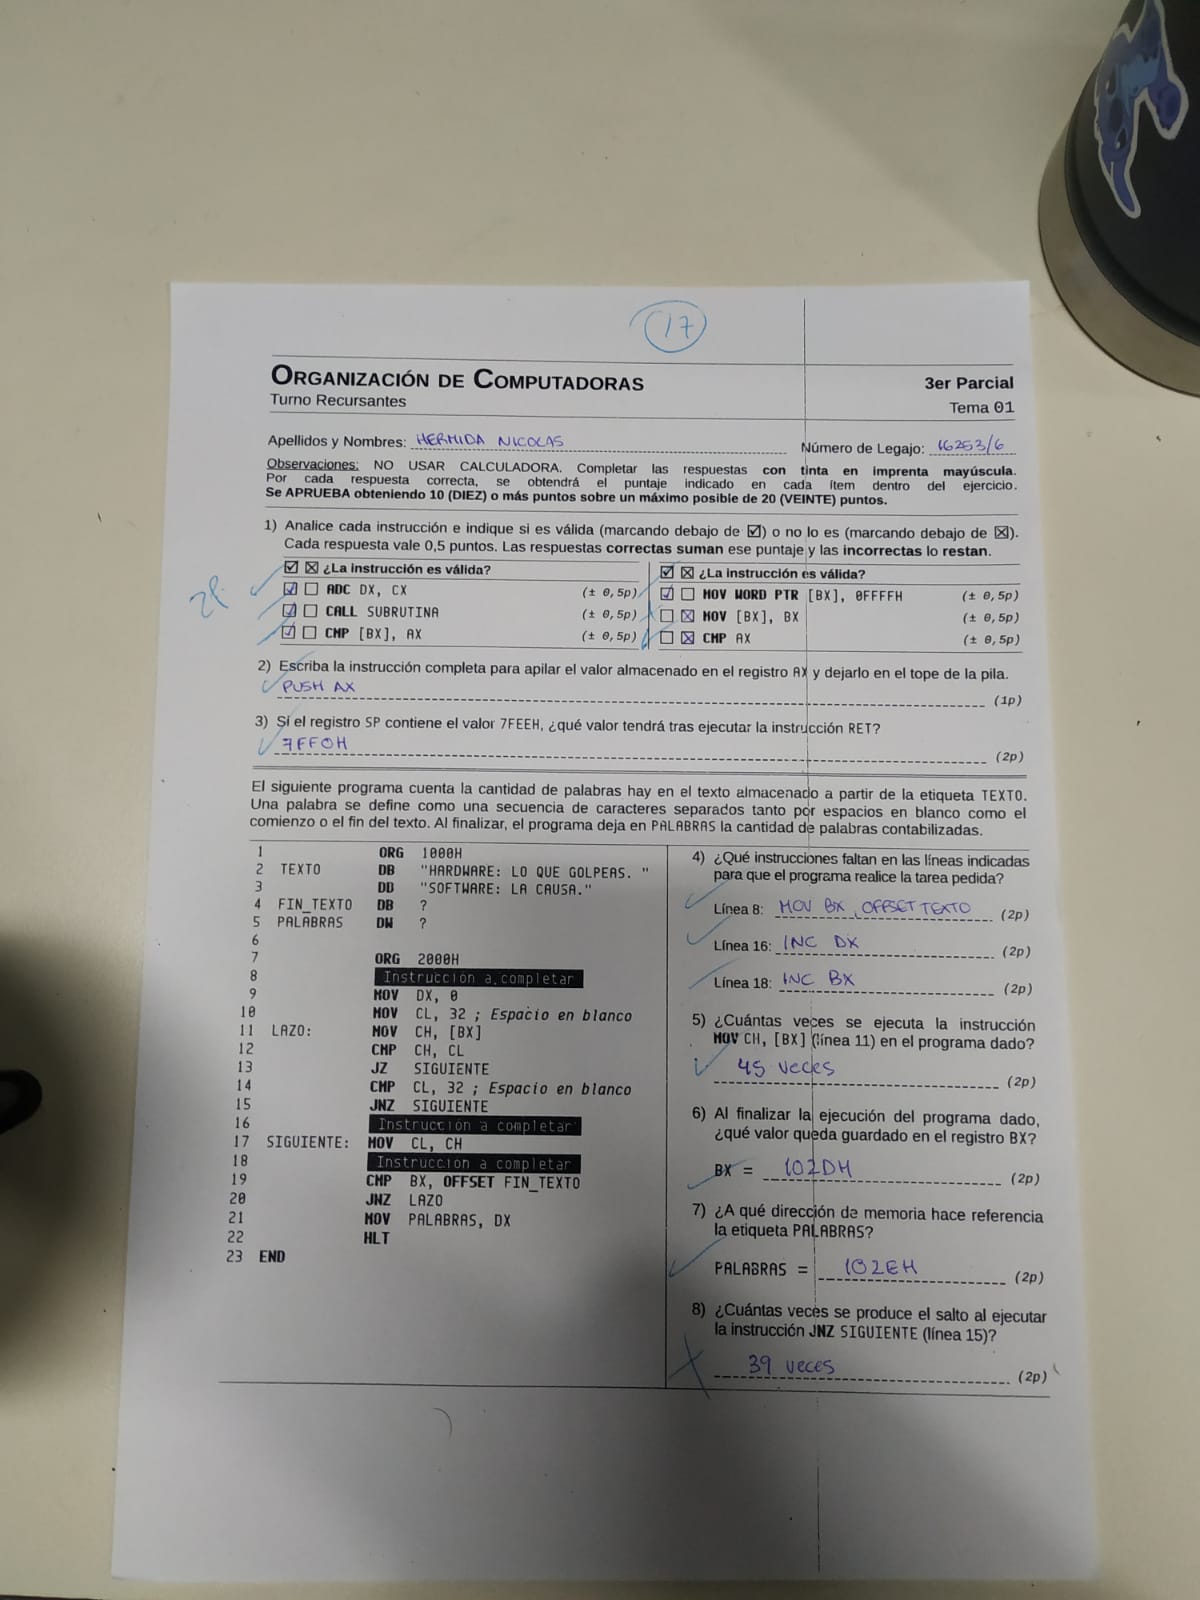 17
ORGANIZACIÓN DE COMPUTADORAS
3er Parcial
Turno Recursantes
Tema 01
Apellidos y Nombres: HERMIDA NICOLAS
Número de Legajo: 16253/6
Observaciones: NO USAR CALCULADORA. Completar las respuestas con tinta en imprenta mayúscula.
Por cada respuesta correcta, se obtendrá el puntaje indicado en cada ítem dentro del ejercicio.
Se APRUEBA obteniendo 10 (DIEZ) o más puntos sobre un máximo posible de 20 (VEINTE) puntos.
1) Analice cada instrucción e indique si es válida (marcando debajo de ☑) o no lo es (marcando debajo de ☒).
Cada respuesta vale 0,5 puntos. Las respuestas correctas suman ese puntaje y las incorrectas lo restan.
☑ ☒ ¿La instrucción es válida?
☑ ☐ ADC DX, CX (± 0,5p)
☑ ☐ CALL SUBRUTINA (± 0,5p)
☑ ☐ CMP [BX], AX (± 0,5p)
☑ ☒ ¿La instrucción es válida?
☑ ☐ MOV WORD PTR [BX], 0FFFFH (± 0,5p)
☐ ☒ MOV [BX], BX (± 0,5p)
☐ ☒ CMP AX (± 0,5p)
2) Escriba la instrucción completa para apilar el valor almacenado en el registro AX y dejarlo en el tope de la pila.
PUSH AX (1p)
3) Si el registro SP contiene el valor 7FEEH, ¿qué valor tendrá tras ejecutar la instrucción RET?
7FF0H (2p)
El siguiente programa cuenta la cantidad de palabras hay en el texto almacenado a partir de la etiqueta TEXTO.
Una palabra se define como una secuencia de caracteres separados tanto por espacios en blanco como el
comienzo o el fin del texto. Al finalizar, el programa deja en PALABRAS la cantidad de palabras contabilizadas.
1 ORG 1000H
2 TEXTO DB "HARDWARE: LO QUE GOLPEAS. "
3 DB "SOFTWARE: LA CAUSA."
4 FIN_TEXTO DB ?
5 PALABRAS DW ?
6
7 ORG 2000H
8 Instrucción a completar
9 MOV DX, 0
10 MOV CL, 32 ; Espacio en blanco
11 LAZO: MOV CH, [BX]
12 CMP CH, CL
13 JZ SIGUIENTE
14 CMP CL, 32 ; Espacio en blanco
15 JNZ SIGUIENTE
16 Instrucción a completar
17 SIGUIENTE: MOV CL, CH
18 Instrucción a completar
19 CMP BX, OFFSET FIN_TEXTO
20 JNZ LAZO
21 MOV PALABRAS, DX
22 HLT
23 END
4) ¿Qué instrucciones faltan en las líneas indicadas
para que el programa realice la tarea pedida?
Línea 8: MOV BX, OFFSET TEXTO (2p)
Línea 16: INC DX (2p)
Línea 18: INC BX (2p)
5) ¿Cuántas veces se ejecuta la instrucción
MOV CH, [BX] (línea 11) en el programa dado?
45 veces (2p)
6) Al finalizar la ejecución del programa dado,
¿qué valor queda guardado en el registro BX?
BX = 102DH (2p)
7) ¿A qué dirección de memoria hace referencia
la etiqueta PALABRAS?
PALABRAS = 102EH (2p)
8) ¿Cuántas veces se produce el salto al ejecutar
la instrucción JNZ SIGUIENTE (línea 15)?
39 veces (2p)